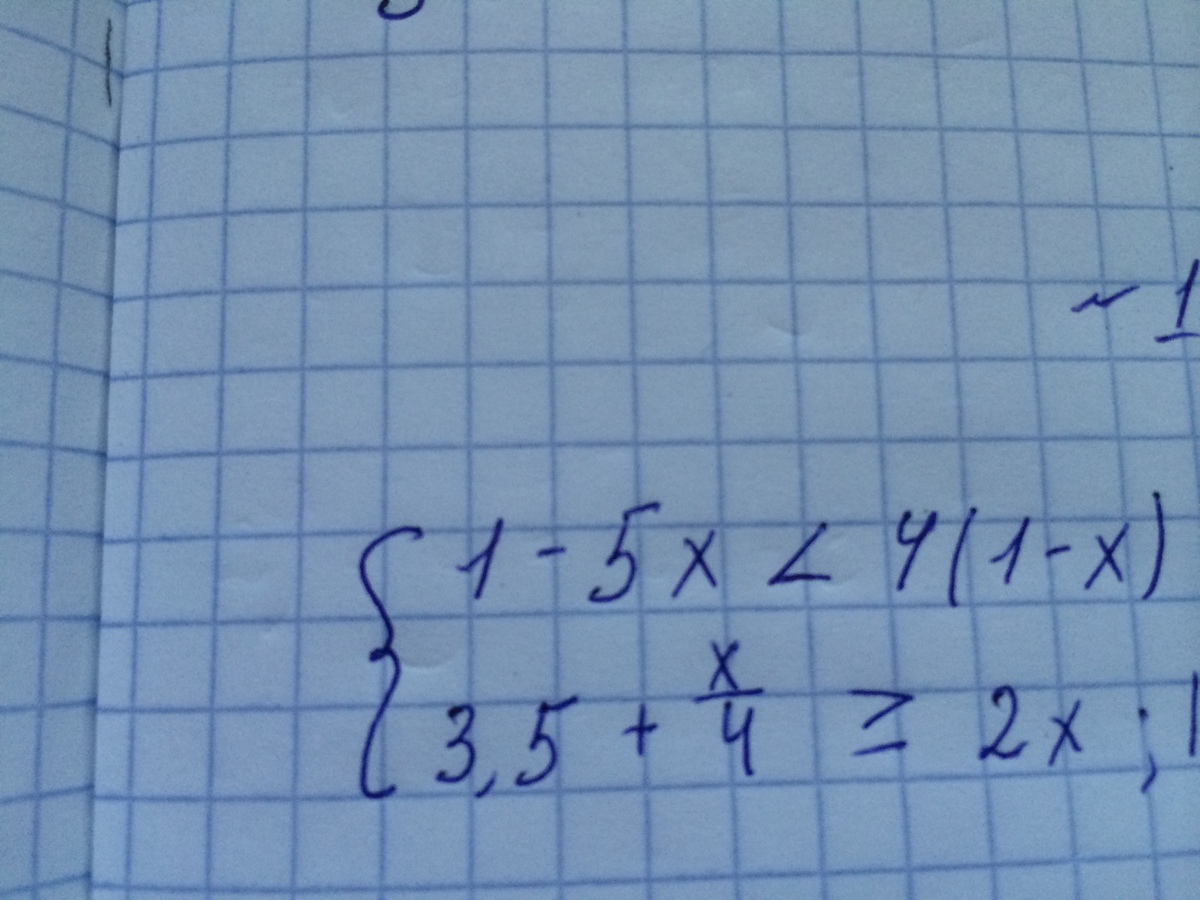 ~ 1
{ 1 - 5x < 4(1-x)
3,5 + x/4 ≥ 2x ; |